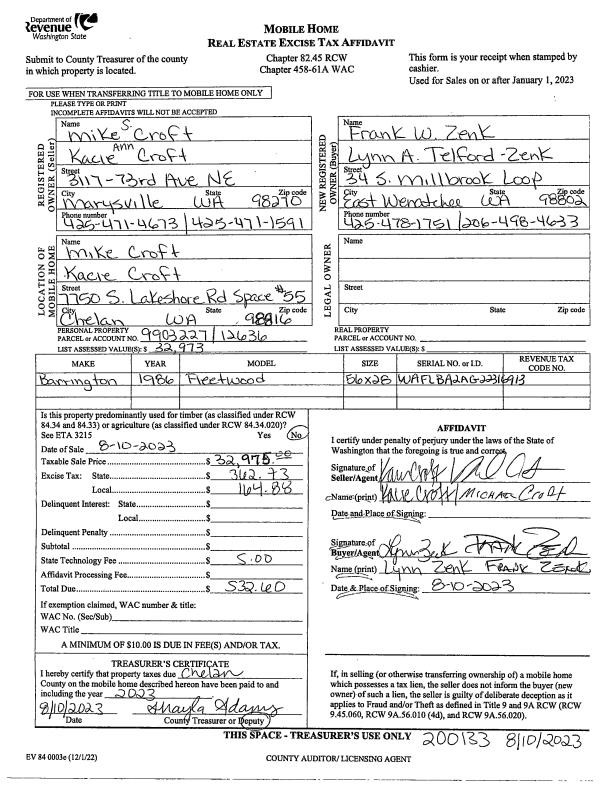 Department of
Revenue
Washington State
MOBILE HOME
REAL ESTATE EXCISE TAX AFFIDAVIT
Submit to County Treasurer of the county
in which property is located.
Chapter 82.45 RCW
Chapter 458-61A WAC
This form is your receipt when stamped by
cashier.
Used for Sales on or after January 1, 2023
FOR USE WHEN TRANSFERRING TITLE TO MOBILE HOME ONLY
PLEASE TYPE OR PRINT
INCOMPLETE AFFIDAVITS WILL NOT BE ACCEPTED
REGISTERED
OWNER (Seller)
Name
Mike S Croft
Kacie Ann Croft
Street
3117-73rd Ave NE
City State Zip code
Marysville WA 98270
Phone number
425-471-4673 / 425-471-1591
NEW REGISTERED
OWNER (Buyer)
Name
Frank W. Zenk
Lynn A. Telford-Zenk
Street
34 S. Millbrook Loop
City State Zip code
East Wenatchee WA 98802
Phone number
425-478-1751 / 206-498-4633
LOCATION OF
MOBILE HOME
Name
Mike Croft
Kacie Croft
Street
7750 S. Lakeshore Rd Space #55
City State Zip code
Chelan WA 98816
PERSONAL PROPERTY
PARCEL or ACCOUNT NO. 9903227 / 12636
LIST ASSESSED VALUE(S): $ 32,973
LEGAL OWNER
Name
Street
City State Zip code
REAL PROPERTY
PARCEL or ACCOUNT NO.
LIST ASSESSED VALUE(S): $
MAKE YEAR MODEL SIZE SERIAL NO. or I.D. REVENUE TAX CODE NO.
Barrington 1986 Fleetwood 56x28 WAFLBA2AG22316913
Is this property predominantly used for timber (as classified under RCW
84.34 and 84.33) or agriculture (as classified under RCW 84.34.020)?
See ETA 3215 Yes No
Date of Sale 8-10-2023
Taxable Sale Price $ 32,975.00
Excise Tax: State $ 362.73
Local $ 164.88
Delinquent Interest: State $
Local $
Delinquent Penalty $
Subtotal $
State Technology Fee $ 5.00
Affidavit Processing Fee $
Total Due $ 532.60
If exemption claimed, WAC number & title:
WAC No. (Sec/Sub)
WAC Title
A MINIMUM OF $10.00 IS DUE IN FEE(S) AND/OR TAX.
AFFIDAVIT
I certify under penalty of perjury under the laws of the State of
Washington that the foregoing is true and correct.
Signature of
Seller/Agent
Name (print) Kacie Croft / MICHAEL CROFT
Date and Place of Signing:
Signature of
Buyer/Agent Lynn Zenk FRANK ZENK
Name (print) Lynn Zenk FRANK ZENK
Date & Place of Signing: 8-10-2023
TREASURER'S CERTIFICATE
I hereby certify that property taxes due Chelan
County on the mobile home described hereon have been paid to and
including the year 2023
8/10/2023 Shayla Adams
Date County Treasurer or Deputy
If, in selling (or otherwise transferring ownership of) a mobile home
which possesses a tax lien, the seller does not inform the buyer (new
owner) of such a lien, the seller is guilty of deliberate deception as it
applies to Fraud and/or Theft as defined in Title 9 and 9A RCW (RCW
9.45.060, RCW 9A.56.010 (4d), and RCW 9A.56.020).
THIS SPACE - TREASURER'S USE ONLY 200133 8/10/2023
EV 84 0003e (12/1/22)
COUNTY AUDITOR/ LICENSING AGENT